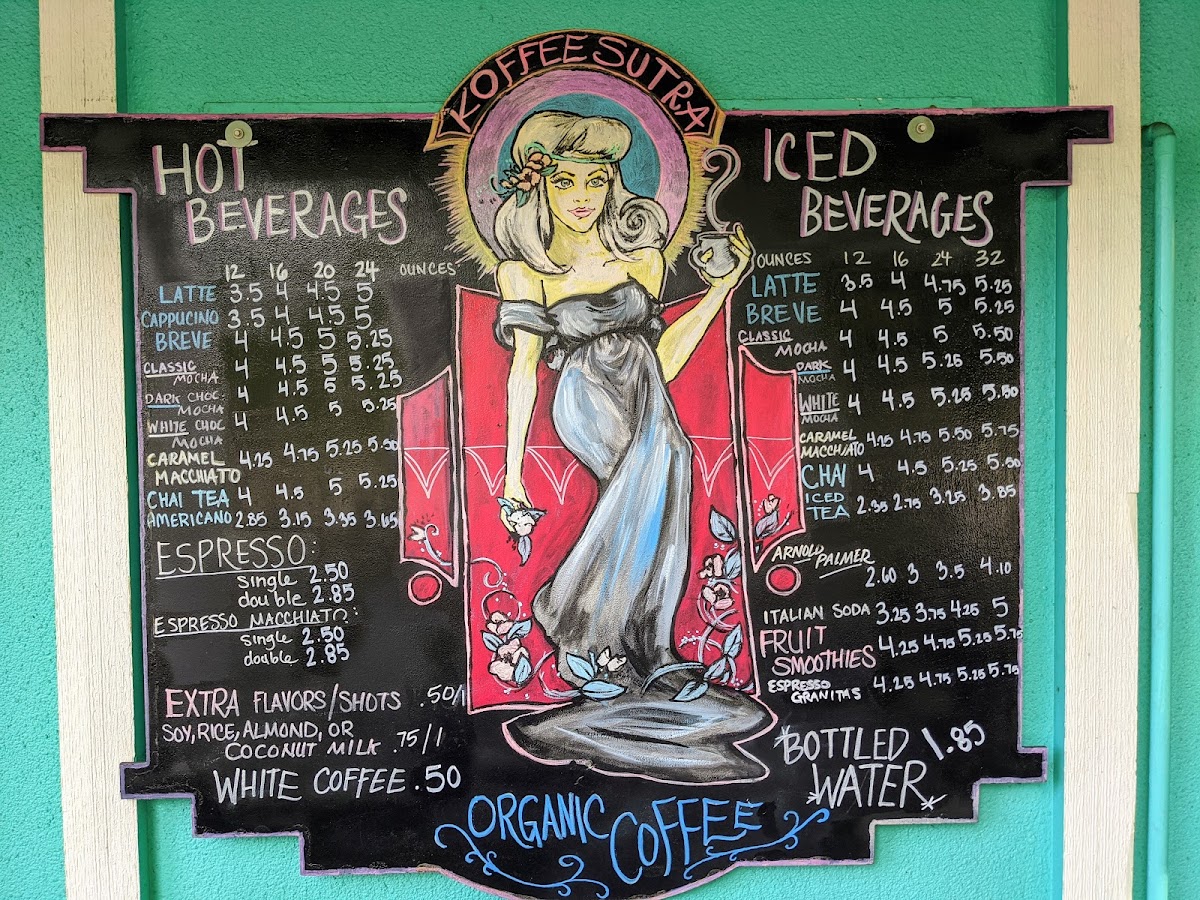 KOFFEE SUTRA
HOT
BEVERAGES
12 16 20 24 OUNCES
LATTE 3.5 4 4.5 5
CAPPUCINO 3.5 4 4.5 5
BREVE 4 4.5 5 5.25
CLASSIC
MOCHA 4 4.5 5 5.25
DARK CHOC
MOCHA 4 4.5 5 5.25
WHITE CHOC
MOCHA 4 4.5 5 5.25
CARAMEL
MACCHIATO 4.25 4.75 5.25 5.50
CHAI TEA 4 4.5 5 5.25
AMERICANO 2.85 3.15 3.35 3.65
ESPRESSO:
single 2.50
double 2.85
ESPRESSO MACCHIATO:
single 2.50
double 2.85
EXTRA FLAVORS/SHOTS .50/1
SOY, RICE, ALMOND, OR
COCONUT MILK .75/1
WHITE COFFEE .50
ICED
BEVERAGES
OUNCES 12 16 24 32
LATTE 3.5 4 4.75 5.25
BREVE 4 4.5 5 5.25
CLASSIC
MOCHA 4 4.5 5 5.50
DARK
MOCHA 4 4.5 5.25 5.50
WHITE
MOCHA 4 4.5 5.25 5.50
CARAMEL
MACCHIATO 4.25 4.75 5.50 5.75
CHAI 4 4.5 5.25 5.50
ICED
TEA 2.35 2.75 3.25 3.85
ARNOLD PALMER
2.60 3 3.5 4.10
ITALIAN SODA 3.25 3.75 4.25 5
FRUIT
SMOOTHIES 4.25 4.75 5.25 5.75
ESPRESSO
GRANITAS 4.25 4.75 5.25 5.75
*BOTTLED 1.85
*WATER*
ORGANIC COFFEE